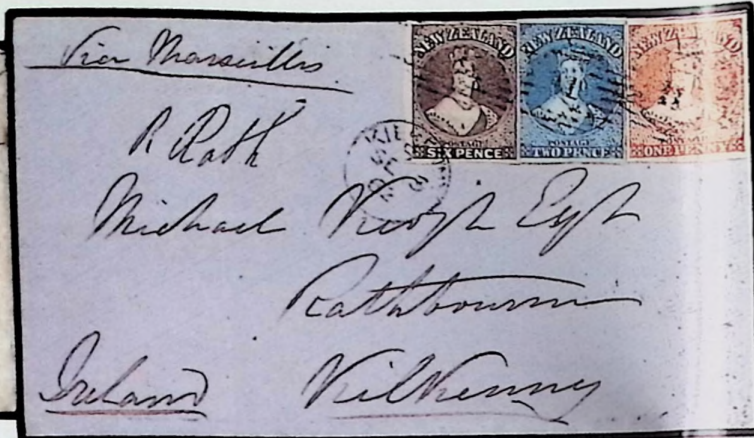 Via Marseilles
NEW ZEALAND
POSTAGE
SIX PENCE
NEW ZEALAND
POSTAGE
TWO PENCE
NEW ZEALAND
POSTAGE
ONE PENNY
Rath
Michael Keogh Esqr
Rathbourne
Ireland Kilkenny